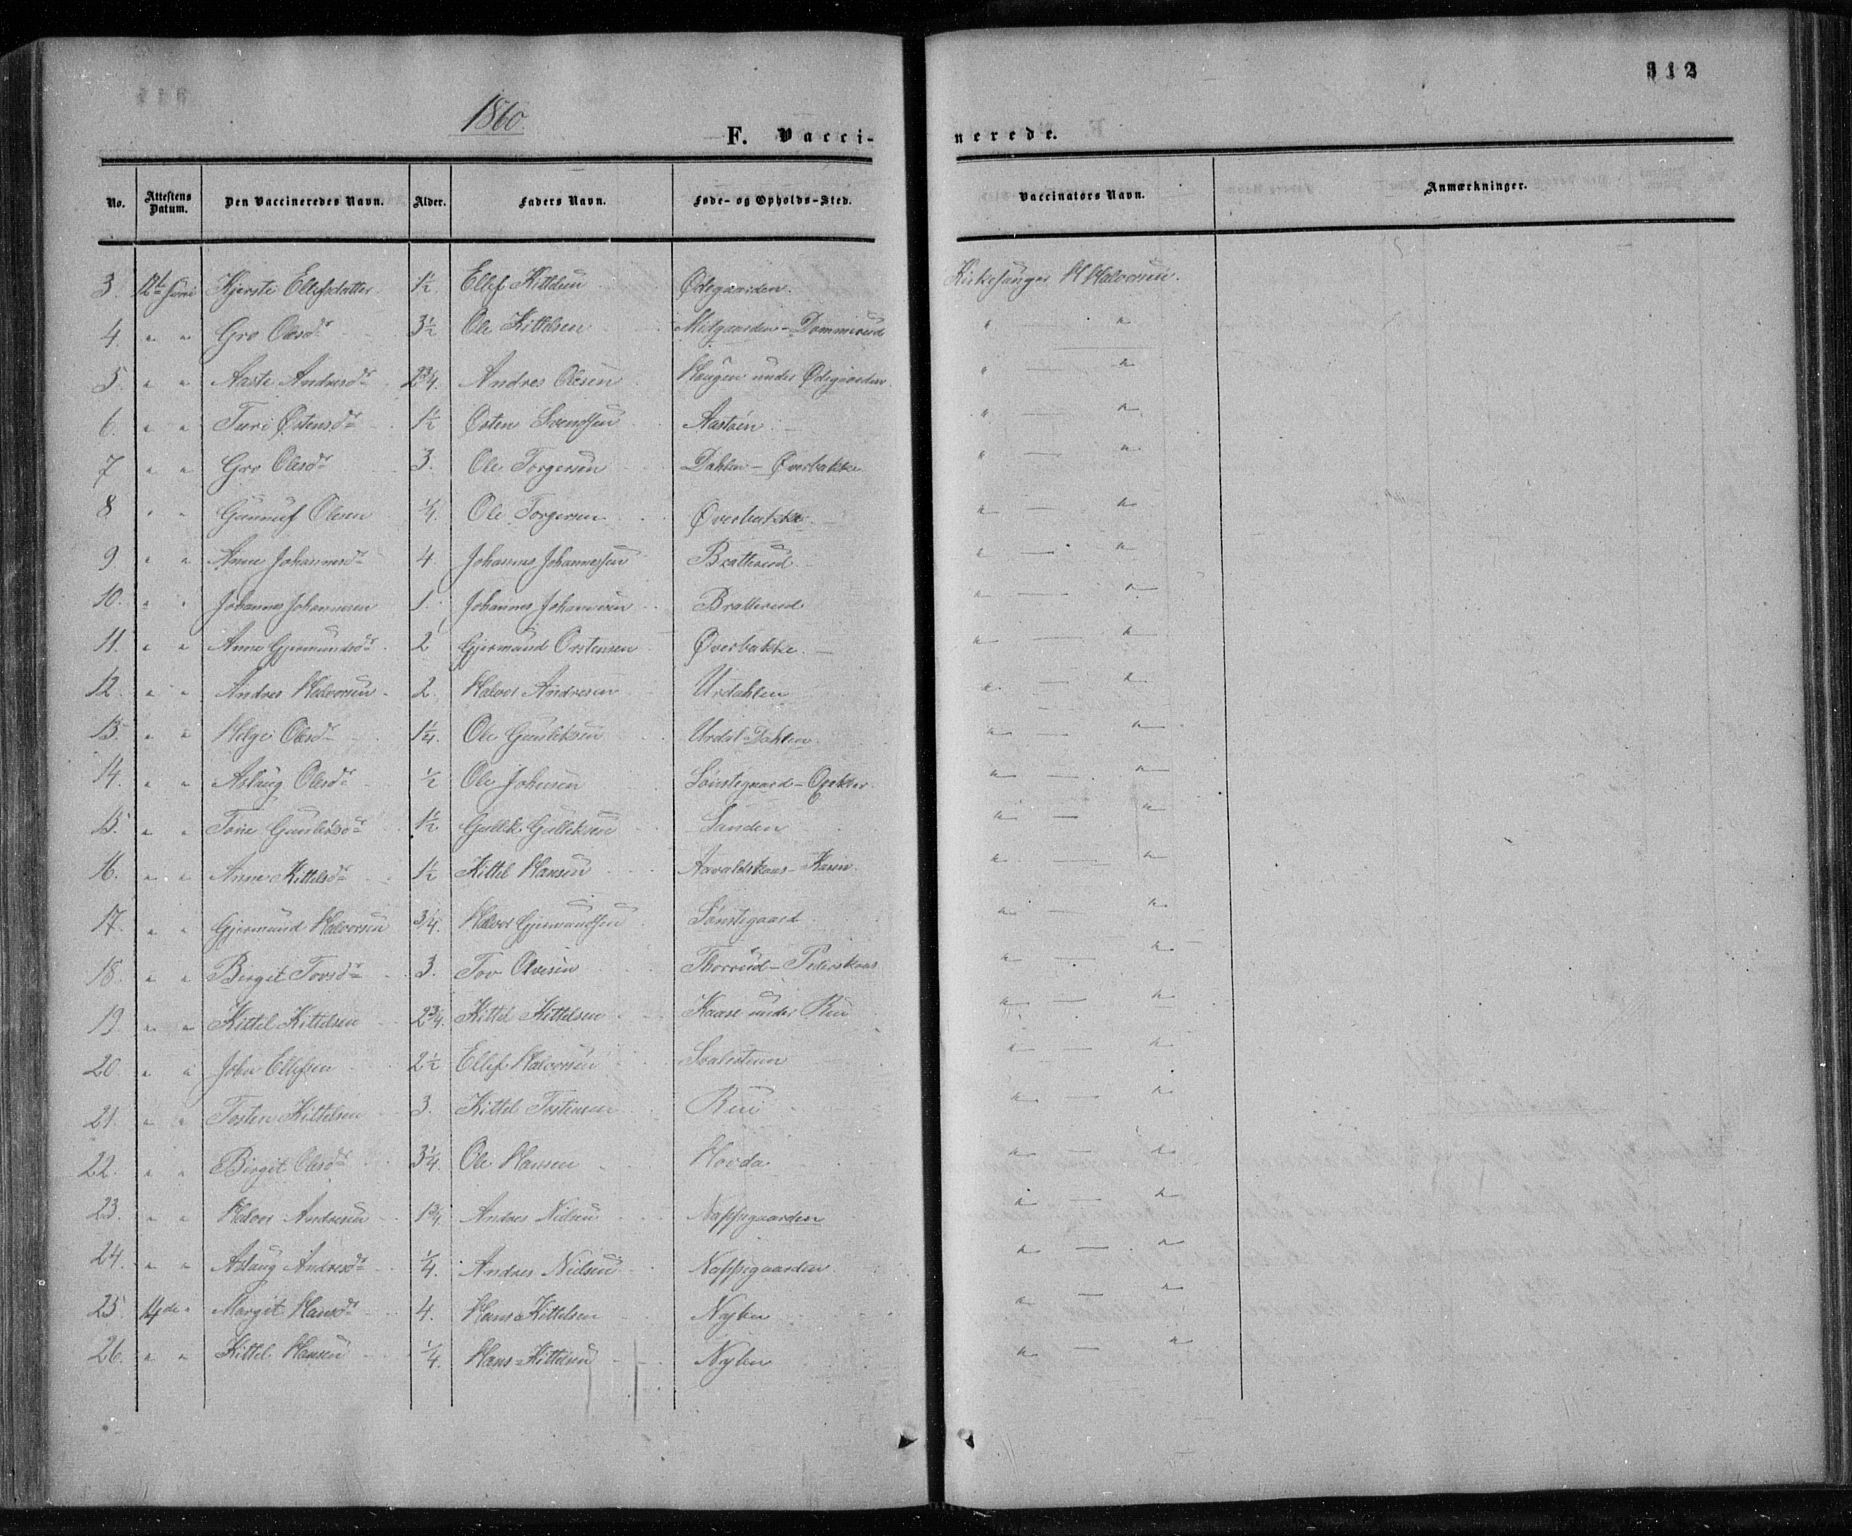 312
1860
F. Vaccinerede.
No. Attestens Datum. Den Vaccineredes Navn. Alder. Faders Navn. Føde- og Opholds-Sted. Vaccinators Navn. Anmærkninger.
3. 12te Juni Kjersti Ellefsdatter 1½ Ellef Kittelsen Ødegaarden. Kirkesanger H Halvorsen.
4. " " Gro Olesdr 3½ Ole Kittelsen Midgaarden - Dommerud " — "
5 " " Aaste Andresdr 2¾ Andres Olesen Haugen under Ødegaarden " — "
6. " " Turi Østensdr 1½ Østen Svendsen " — "
7 " " Gro Olesdr 3. Ole Torgersen Dahlen - Øverbakke " — "
8 " " Gunnuf Olesen ¼ Ole Torgersen Øverbakke " — "
9 " " Anne Johannesdr 4 Johannes Johannessen Bratterud " — "
10. " " Johannes Johannesen 1. Johannes Johannesen Bratterud " — "
11. " " Anne Gjermundsdr 2 Gjermund Ostensen Øverbakke. " — "
12. " " Andres Halvorsen 2. Halvor Andresen Urdahlen " — "
13. " " Helge Olesdr 1¼ Ole Gunleksen " — "
14. " " Aslaug Olesdr ½ Ole Johnsen Sønstegaard - " — "
15. " " Tone 1½ Gullik Gulleksen Sanden " — "
16. " " Anne Kittelsdr 1½ Kittel Hansen " — "
17. " " Gjermund Halvorsen ¾. Halvor Gjermundsen Sønstegaard " — "
18. " " Birgit Tovsdr 3. Tov Olsen Thorrud - Pederskaas " — "
19. " " Kittel Kittelsen 2¾. Kittel Kittelsen Kaase under Rui " — "
20. " " John Ellefsen 2½ Ellef Halvorsen " — "
21. " " Tosten Kittelsen 3. Kittel Tostensen Rui " — "
22. " " Birgit Olesdr 3¼ Ole Hansen Hovda " — "
23. " " Halvor Andresen 1¾ Andres Nielsen Nappegaarden " — "
24. " " Aslaug Andresdr ¼ Andres Nielsen Nappegaarden " — "
25 14de " Margit Hansdr 4. Hans Kittelsen Nyhus " — "
26. " " Kittel Hansen ¼. Hans Kittelsen Nyhus " — "